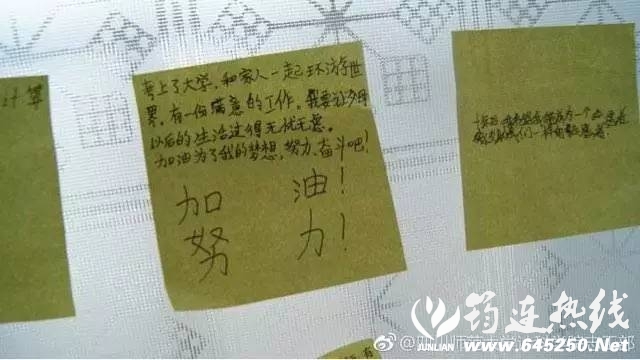 计算
考上了大学,和家人一起环游世
界,有一份满意的工作。我要让父母
以后的生活过得无忧无虑。
加油为了我的梦想,努力、奋斗吧!
加油!
努力!
十年后
筠连热线
JUNLIAN
www.645250.Net
有